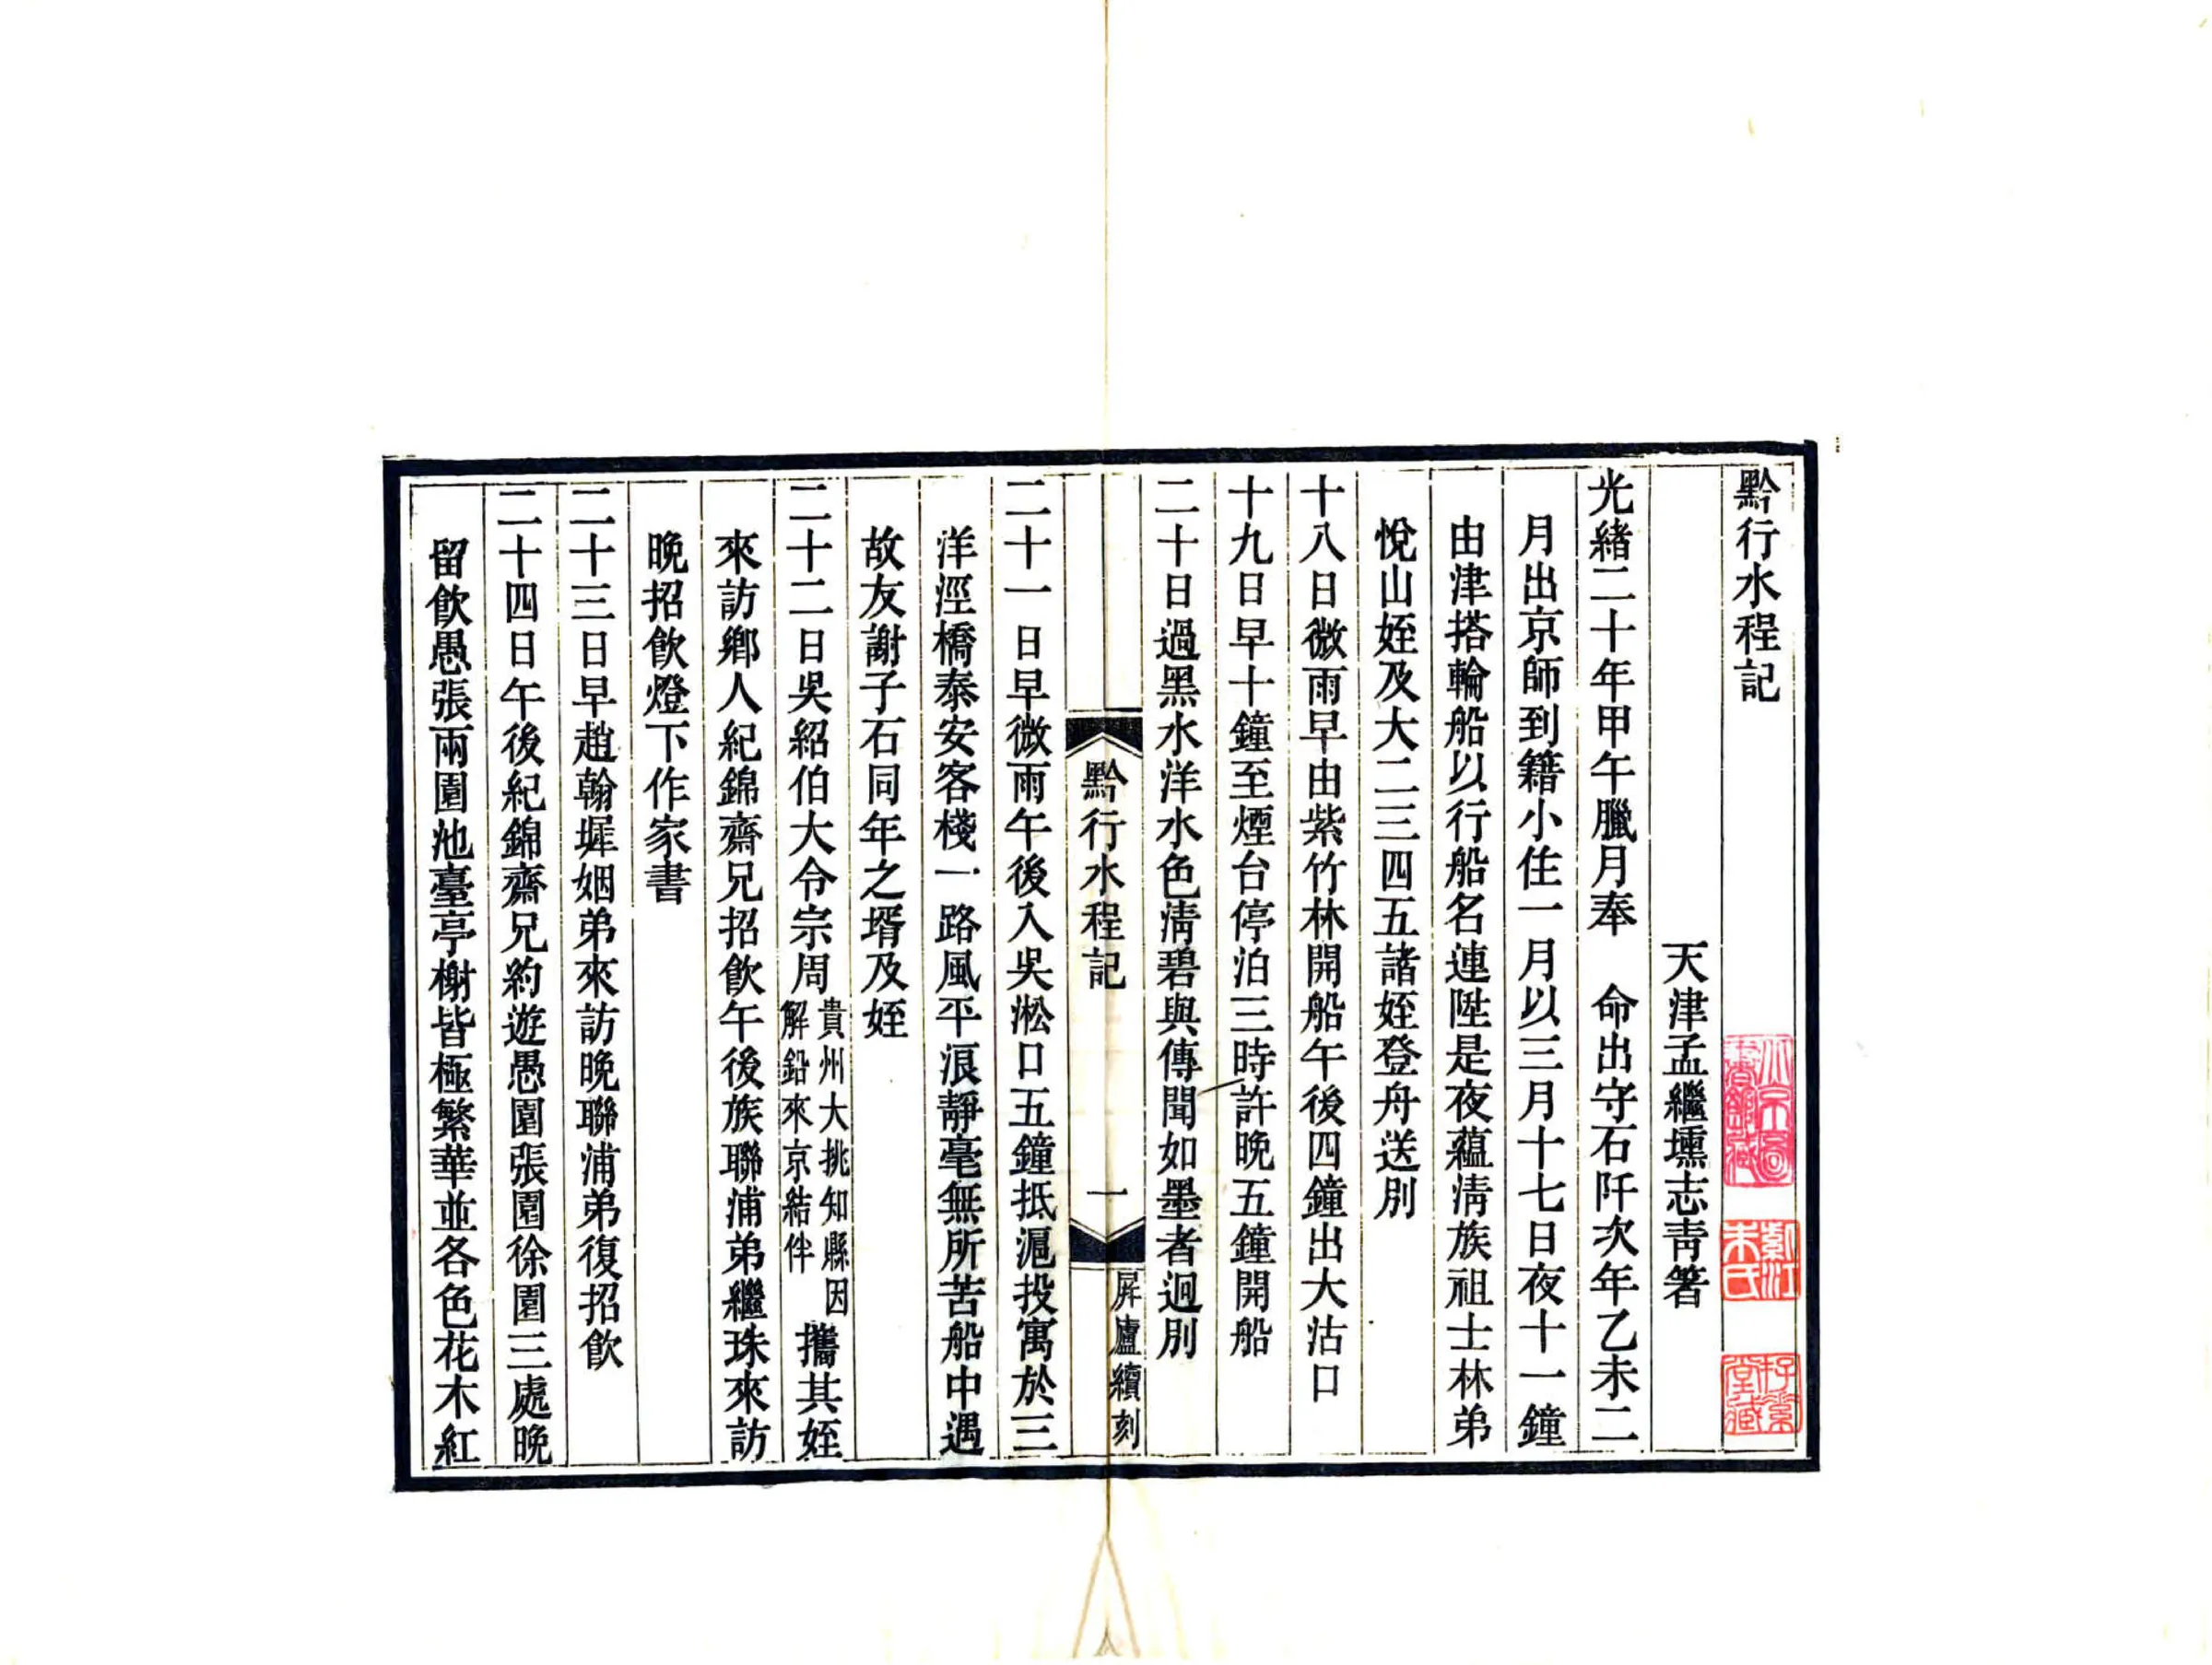 黔行水程記
天津孟繼壎志青箸
光緒二十年甲午臘月奉　命出守石阡次年乙未二
月出京師到籍小住一月以三月十七日夜十一鐘
由津搭輪船以行船名連陞是夜蘊淸族祖士林弟
悅山姪及大二三四五諸姪登舟送別
十八日微雨早由紫竹林開船午後四鐘出大沽口
十九日早十鐘至煙台停泊三時許晚五鐘開船
二十日過黑水洋水色淸碧與傳聞如墨者迥別
黔行水程記
一
屏廬續刻
二十一日早微雨午後入吳淞口五鐘抵滬投寓於三
洋涇橋泰安客棧一路風平浪靜毫無所苦船中遇
故友謝子石同年之壻及姪
二十二日吳紹伯大令宗周貴州大挑知縣因解鉛來京結伴攜其姪
來訪鄉人紀錦齋兄招飮午後族聯浦弟繼珠來訪
晚招飮燈下作家書
二十三日早趙翰墀姻弟來訪晚聯浦弟復招飮
二十四日午後紀錦齋兄約遊愚園張園徐園三處晚
留飮愚張兩園池臺亭榭皆極繁華並各色花木紅
紫江朱氏
存素堂藏